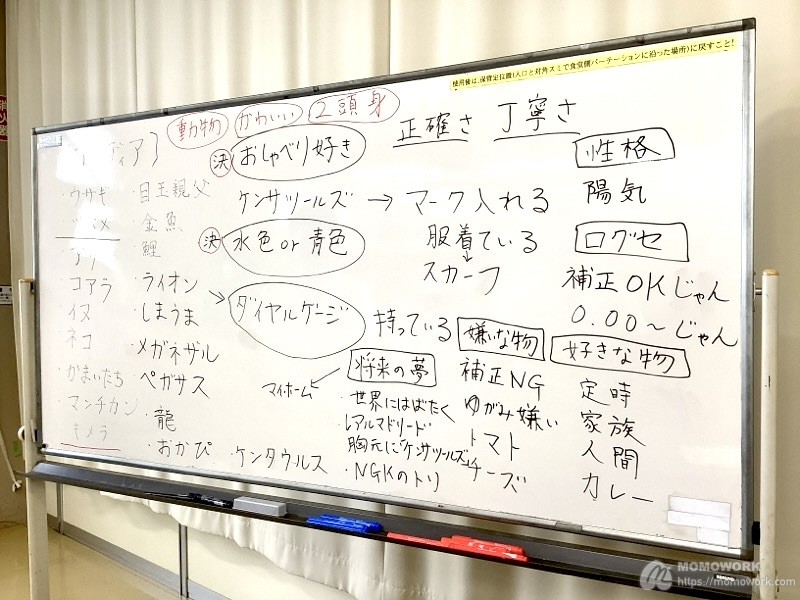 使用後は、保管定位置(入口と対角スミで食堂側パーテーションに沿った場所)に戻すこと!
動物 かわいい 2頭身
正確さ 丁寧さ
ディア}
決 おしゃべり好き
ケンサツールズ → マーク入れる
服着ている
スカーフ
決 水色or青色
ダイヤルゲージ 持っている
性格
陽気
口グセ
補正OKじゃん
0.00〜じゃん
ウサギ
コアラ
イヌ
ネコ
かまいたち
マンチカン
キメラ
・目玉親父
・金魚
・鯉
・ライオン
・しまうま
・メガネザル
・ペガサス
・龍
・おかぴ
・ケンタウルス
将来の夢
マイホーム
・世界にはばたく
レアルマドリード
胸元に"ケンサツールズ"
・NGKのトリ
嫌いな物
補正NG
ゆがみ嫌い
トマト
チーズ
好きな物
定時
家族
人間
カレー
MOMOWORK
https://momowork.com